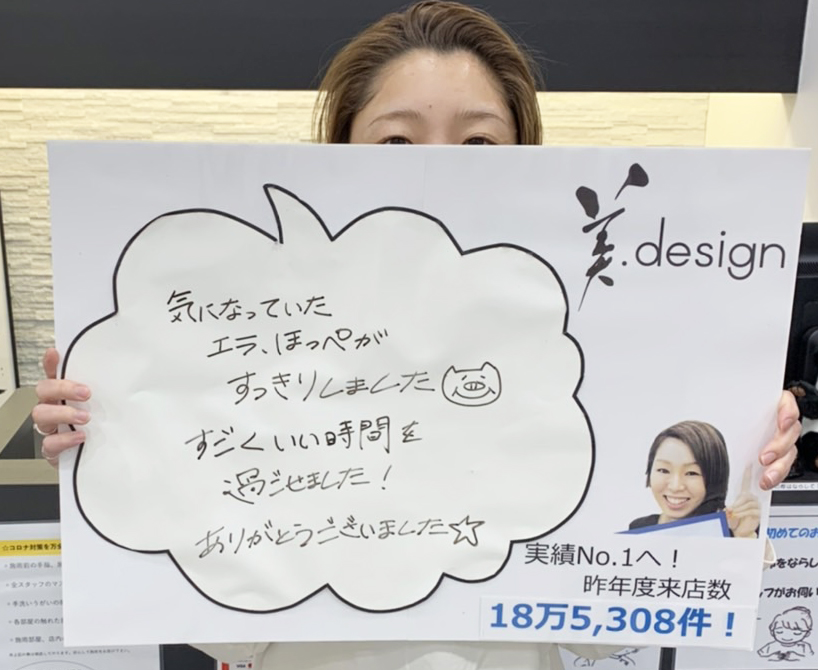 美.design
気になっていた
エラ、ほっぺが
すっきりしました
すごくいい時間を
過ごせました!
ありがとうございました☆
実績No.1へ!
昨年度来店数
18万5,308件!
☆コロナ対策を万全
初めてのお